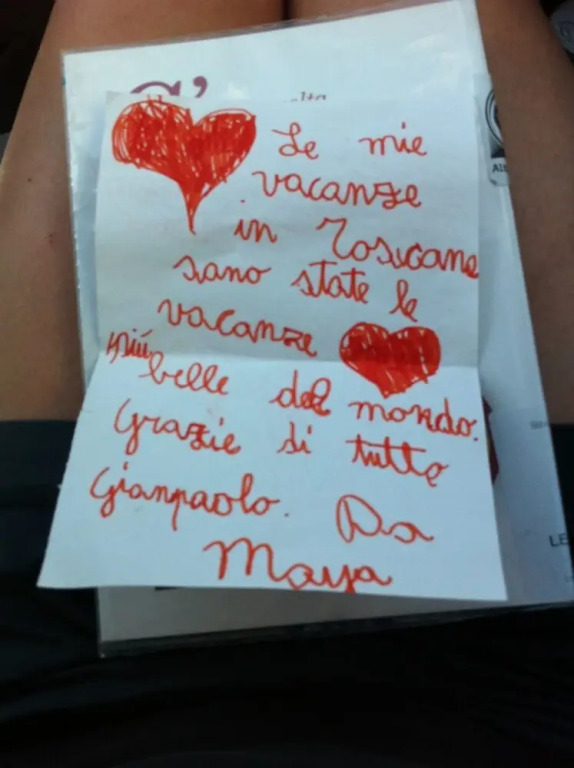 Le mie
vacanze
in Toscana
sono state le
vacanze
più belle del mondo.
Grazie di tutto
Gianpaolo. Da
Maya